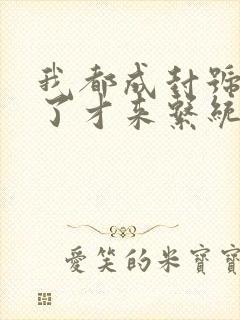 我都成封號
了才来繫統
愛笑的米寶寶